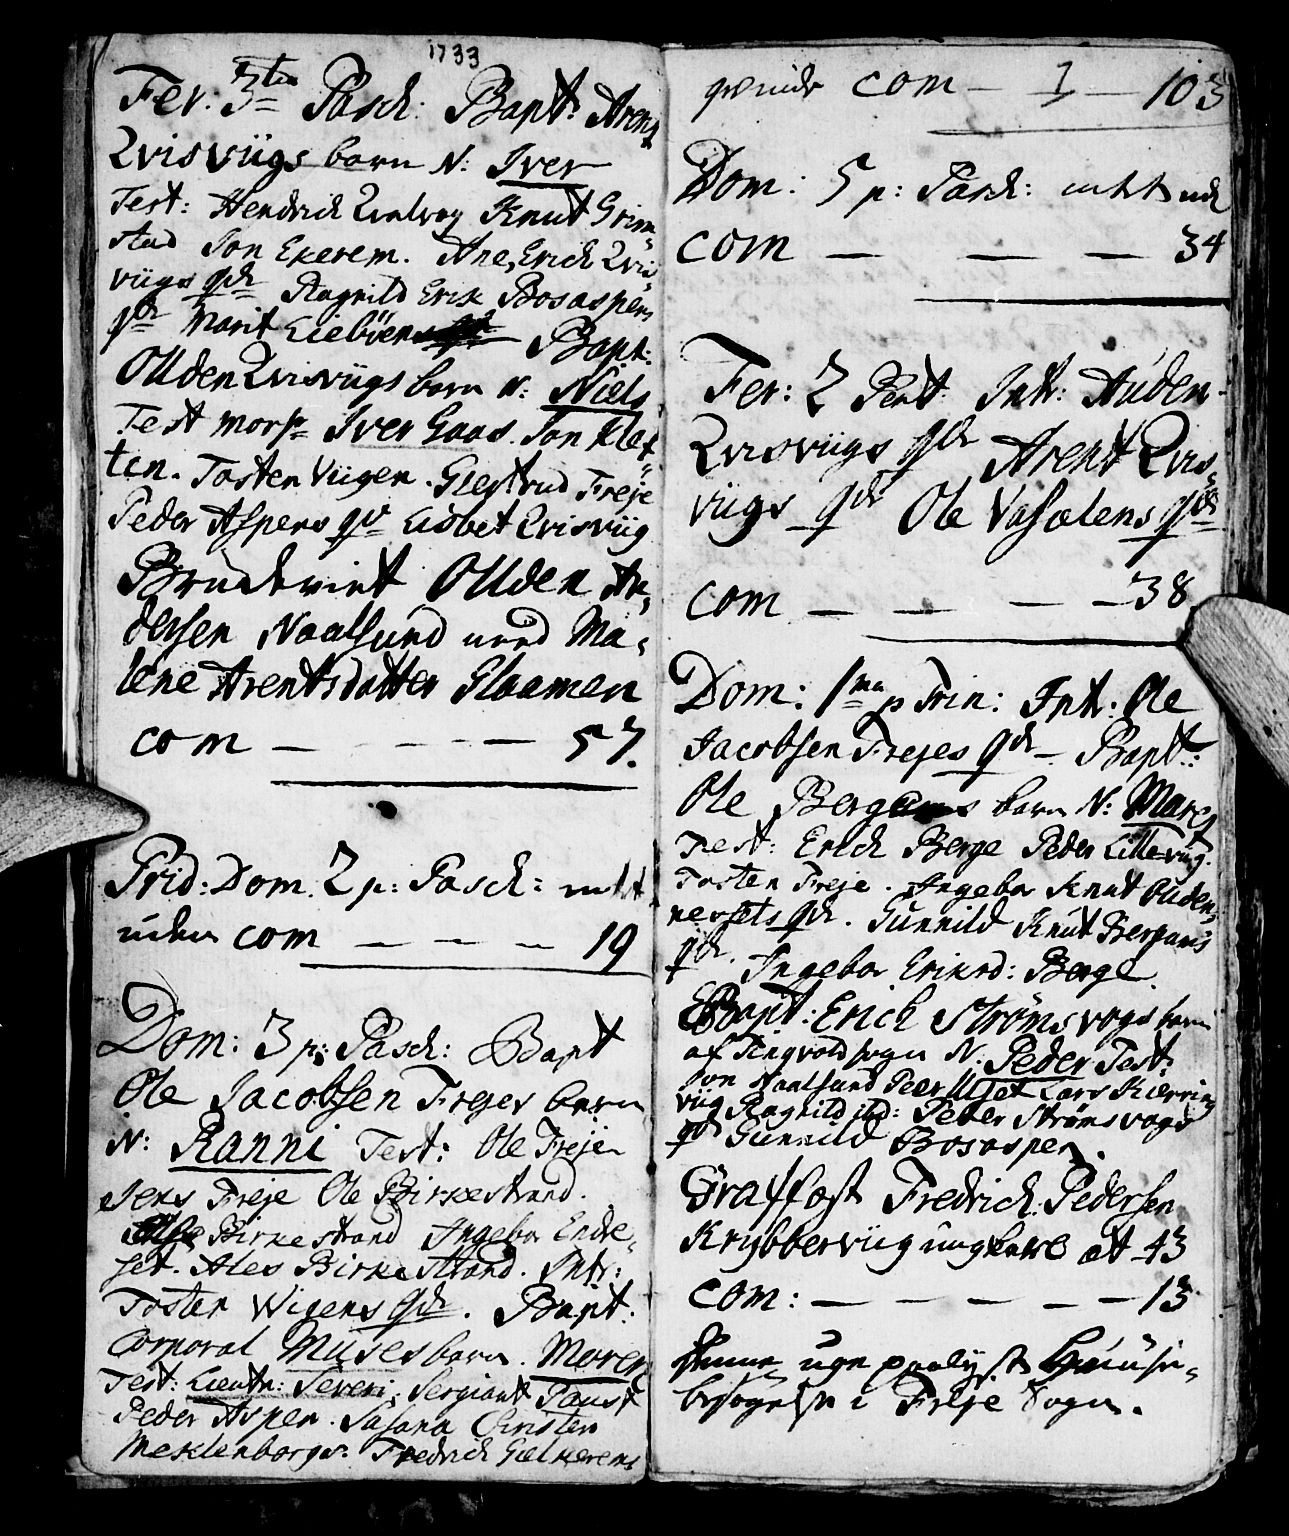 1733
Fer: 3tia Pasch: Bapt: Arent
Qvisviigs barn N: Iver
Test: Hendrich Qvalvog Knut Grim
stad Jon Ekerem. Ane Erich Qvis
viigs qde Ragnild Erik Bosaspens
qde Marit Lieböens Bapt:
Olden Qvisviigs barn N: Niels
Test Monsr Iver Gaas. Jon Klet
ten. Tosten Viigen. Giertrud Freje
Peder Aspens qv Lisbet Qvisviig
Brudeviet Olden An
dersen Naalsund med Ma
lene Arentsdatter Glaamen
com — — — 57.
Prid: Dom 2 p: Pasch: intet
uden com — — — 19
Dom: 3 p: Pasch: Bapt
Ole Jacobsen Frejes barn
N: Ranni Test: Ole Frejen
Jens Freje Ole Birkestrand.
Birkestrand Ingebor Endre
set. Ales Birkestrand. Intr:
Tosten Wigens qde. Bapt:
Corporal Muses barn. Moren
Test: Lieutn: Severi, Sergiant Faust
Peder Aspen. Susana Christen
Meklenborgs. Fredrich Gielkerens
qvinde com — 1 — 103
Dom: 5 p: Pasch: intet uden
com — — — 34
Fer: 2 Pent Intr: Auden
Qvisviigs qde Arent Qvis
viigs qde Ole Vasolens qde
com — — — — 38
Dom: 1ma p Trin: Intr. Ole
Jacobsen Frejes qde — Bapt:
Ole Bergans barn N: Maret
Test: Erich Berge Peder Lillevüg.
Tosten Freje. Ingebor Knut Ouden
nersets qde. Gunnild Knut Bergans
qde. Ingebor Eriksd: Berge.
Bapt: Erich Strömsvogs barn
af Tingvold sogn N. Peder Test:
Jon Naalsund Peer Uset Lars Kierring
viig Ragnild Peder Strömsvogs
qde Gunnild Bosaspen.
Graffäst Fredrich Pedersen
Krybberviig ungkarl æt 43
com: — — — — — 13
uge paaly ste Huuse
besøgelse i Freje Sogn.